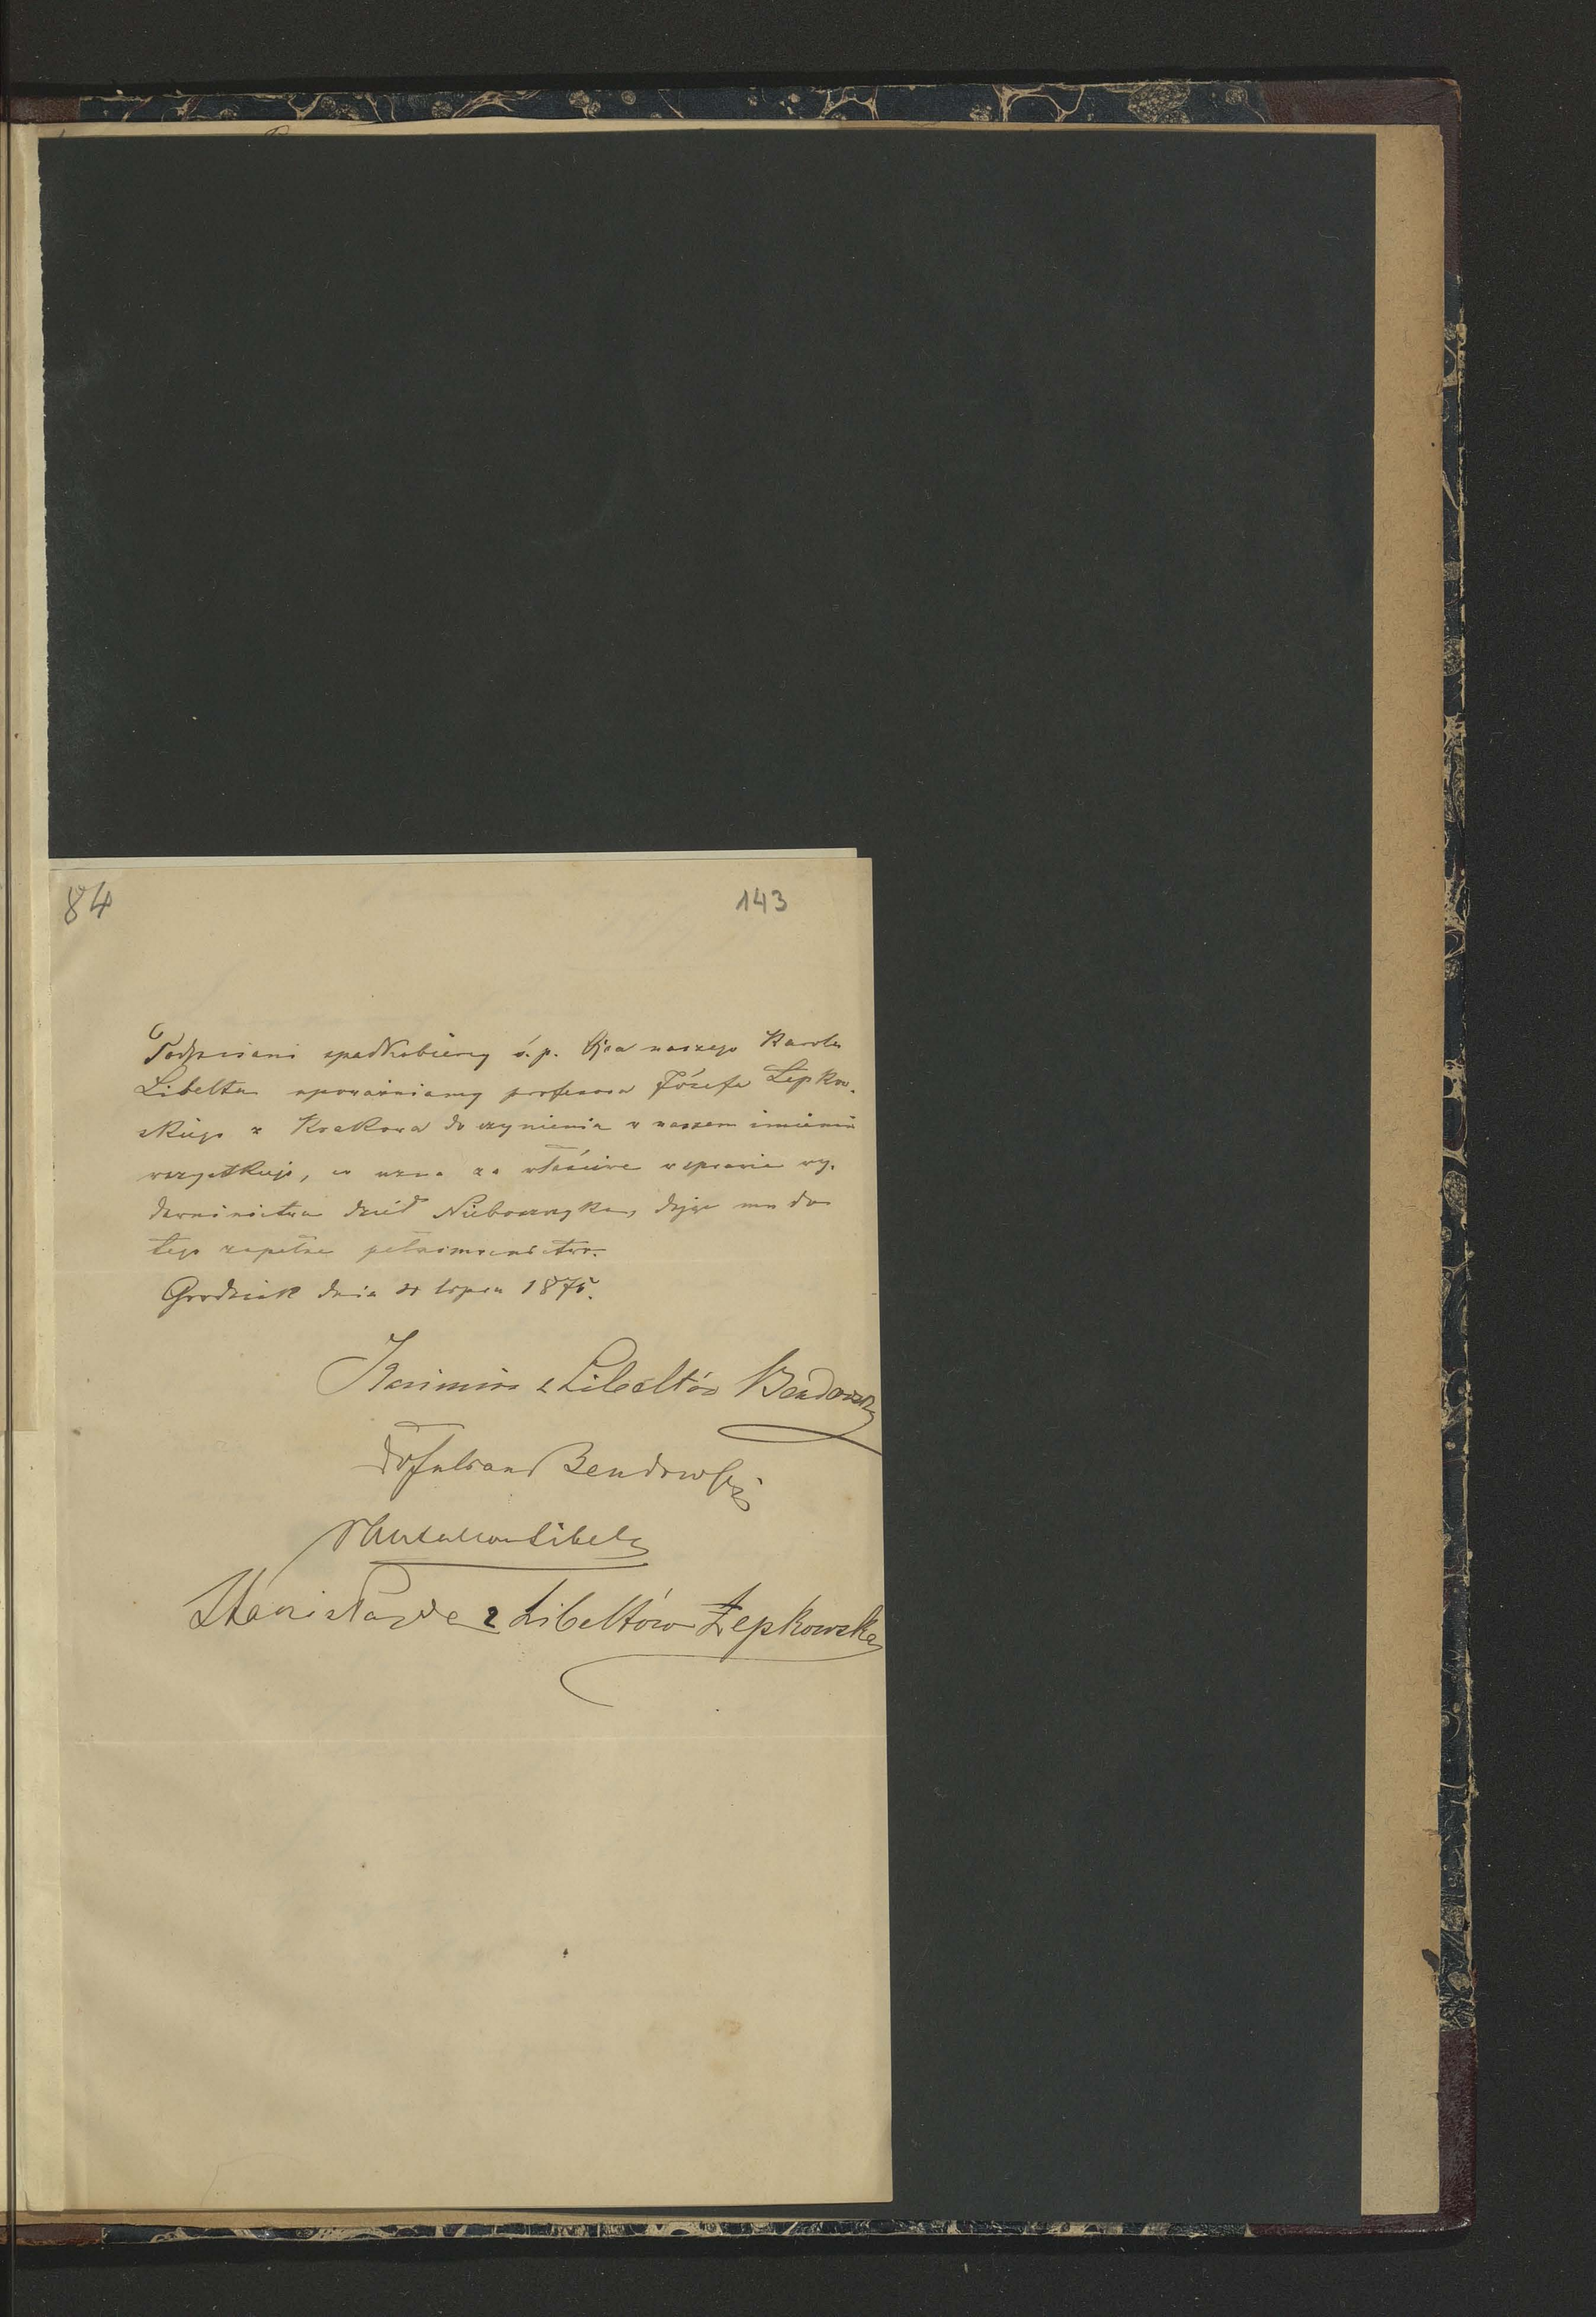 84
143
Podpisani spadkobiercy ś. p. Ojca naszego Karola
Libelta upoważniamy profesora Józefa Łepkow-
skiego z Krakowa do czynienia w naszem imieniu
wszystkiego, co uzna za właściwe w sprawie wy-
dawnictwa dzieł Nieboszczyka, dając mu do
tego zupełne pełnomocnictwo.
Grodzisk dnia lipca 1875.
Kazimira z Libeltów Bendowska
Dr Julian Bendowski
Libelt
Stanisława z Libeltów Łepkowska